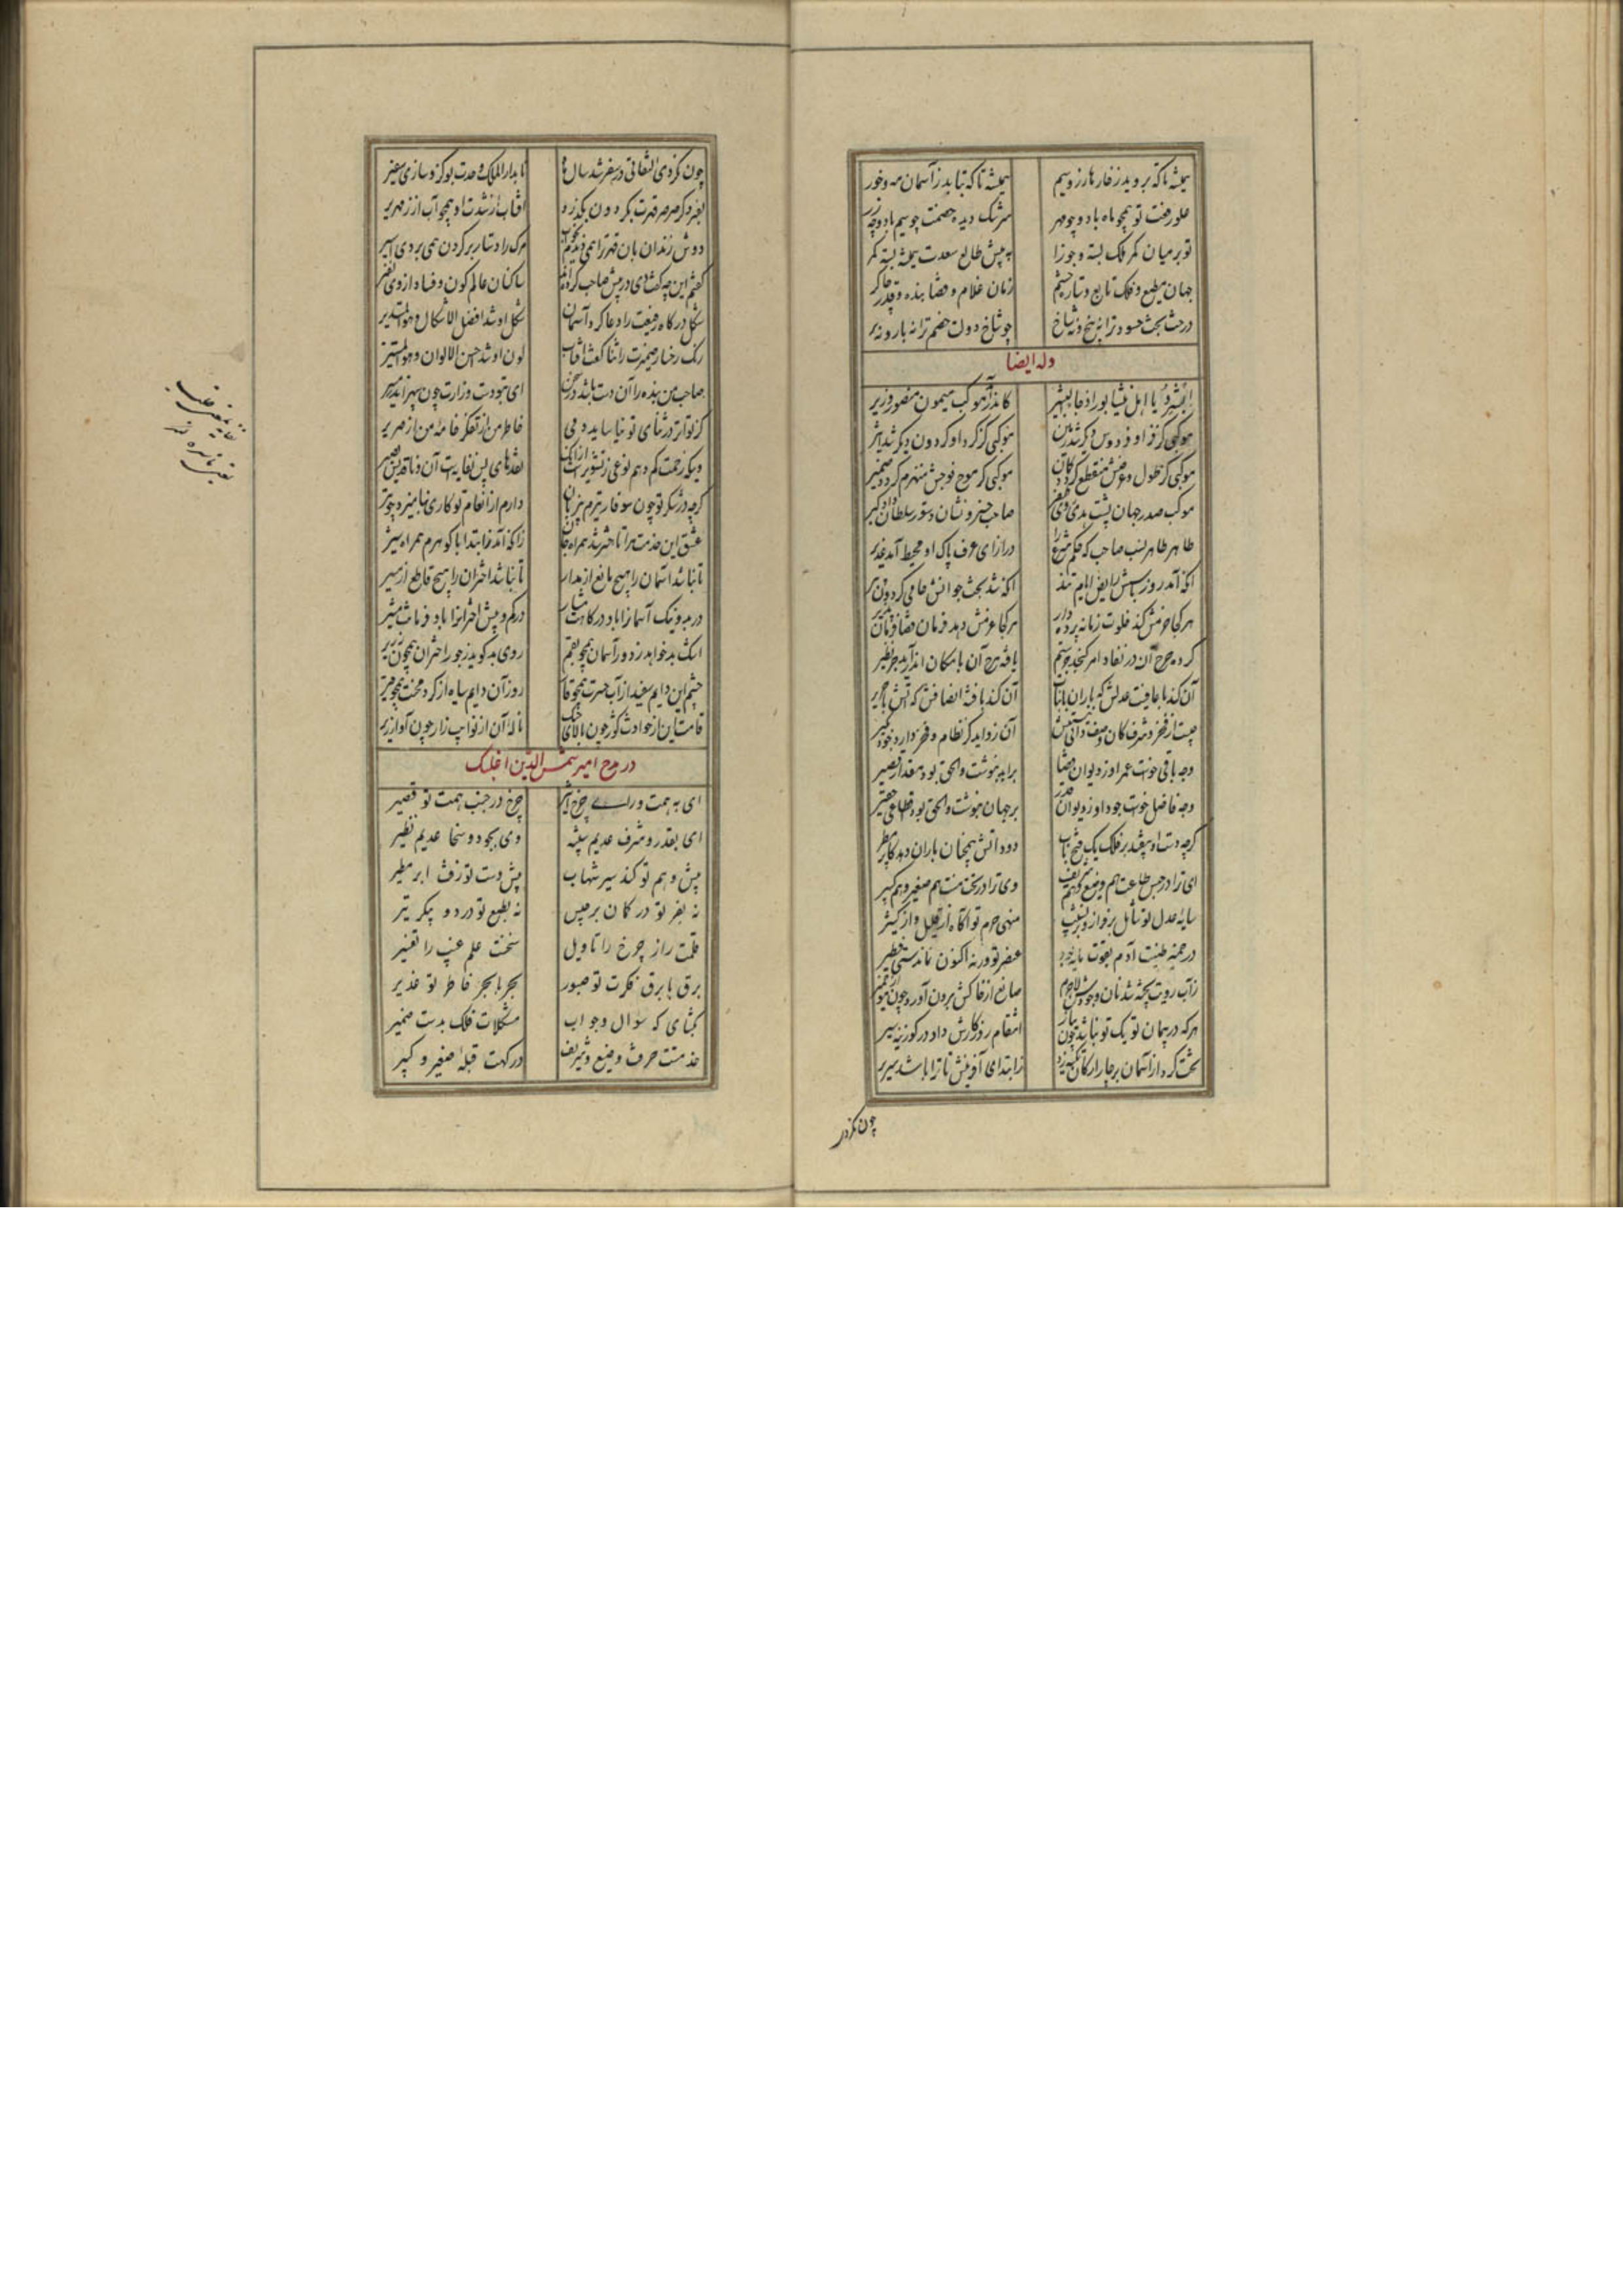 همیشه تا که بروید ز خار هار زر و سیم همیشه تا که بتابد ز آسمان مه و خور
علو رفعت تو همچو ماه باد و چو مهر سرشک دیده خصمت چو سیم باد و چو زر
تو بر میان کمر ملک بسته و جوزا به پیش طالع سعدت همیشه بسته کمر
جهان مطیع و فلک تابع و ستاره حشم زمان غلام و قضا بنده و قدر چاکر
درخت بخت حسود ترا نه بیخ و نه شاخ چو شاخ دولت خصم ترا نه بار و نه بر
وله ایضا
ابشروا یا اهل نیشابور اذ جاء البشیر کاندر آمد موکب میمون منصور وزیر
موکبی کز فر او فردوس دیگر شد زمین موکبی کز گرد او گردون دیگر شد اثیر
موکبی کز طول و عرضش منقطع گردد گمان موکبی کز موج فوجش منهزم گردد ضمیر
موکب صدر جهان پشت هدی روی ظفر صاحب خسرو نشان دستور سلطان دار و گیر
طاهر طاهر نسب صاحب که حکم شرع را در ازای عرف پاک او محیط آمد غدیر
آنکه آمد روز باسش رایض ایام تند آنکه شد بخت جوانش حامی گردون پیر
هر کجا حزمش کند خلوت زمانه پرده‌دار هر کجا عزمش دهد فرمان قضا فرمان پذیر
کرده چرخ آن در نفاد امر یافته چرخ آن با مکان اندر آمد جز نظیر
آن کند با عافیت عدلش که باران با نبات آن کند با فتنه انصافش که آتش با حریر
چیست از فخر و شرف کان وصفت ذاتیش آن زواید کز نظام و فخر دارد خود مگیر
وجه باقی خواست عمر او ز دیوان قضا بر ابد بنوشت و الحق بود مقداری قصیر
وجه فاضل خواست جود او ز دیوان قدر بر جهان بنوشت و الحق بود اقطاعی حقیر
گرچه دست او بیفتد بر فلک یک فتح باب دود آتش همچنان باران دهد کابر مطیر
ای ترا در حبس طاعت هم وضیع و هم شریف وی ترا در تخت منت هم صغیر و هم کبیر
سایه عدل تو شامل بر فراز و بر نشیب منهی حزم تو آگاه از قلیل و از کثیر
در خمیر طینت آدم بقوت مایه بود عنصر تو ورنه اکنون ماندستی فطیر
ز آب رویت پخته شد نان وجودش لاجرم صانع از خاکش برون آورد چون موی از خمیر
هر که در پیمان تو یک تو نباشد چون پیاز انتقام روزگارش داد در گوز پنیر
تخت کرد از آسمان بر چار ارکان ز ابتدای آفرینش تا ترا باشد سریر
چون نکردی
چون نکردی التفاتی در سفر شد سال‌ها تا بدار الملک وحدت بو که نو سازی سفیر
بفسرد گر صرصر قهرت بگردون بگذرد آفتاب از شدت او همچو آب از زمهریر
دوش زندان‌بان قهرت را همی دیدم بخواب مرگ را دستار بر گردن همی بردی اسیر
گفتم این چه گفت دی در پیش صاحب کرده‌اند ساکنان عالم کون و فساد از وی نفیر
شکل درگاه رفیعت را دعا کرد آسمان شکل او شد افضل الاشکال و هو المستدیر
رنگ رخسار ضمیرت را ثنا گفت آفتاب لون او شد احسن الالوان و هو المستنیر
صاحبا من بنده را آن دست باشد در سخن ای بتو دست وزارت چون سپهر اندر مسیر
کز تواتر در ثنای تو نیاساید دمی خاطر من از تفکر خامه من از صریر
ویک زحمت کم دهم نوعی ز تشویر است از آنک نقدهای بس نفایه‌ست آن و ناقد بس بصیر
گرچه در شکر تو چون سوفار تیرم بی‌زبان دارم از انعام تو کاری نهانی چو تیر
عشق این خدمت مرا تا حشر شد همراه جان زانکه آمد ز ابتدا با گوهرم همراه شیر
تا نباشد آسمان را هیچ مانع از مدار تا نباشد اختران را هیچ قاطع از مسیر
در بد و نیک آسمان را باد درگاهت مشار در کم و بیش اختران را باد فرمانت مشیر
اشک بدخواهد ز دور آسمان همچو بقم روی بدگوید ز جور اختران همچون زریر
چشم این دایم سفید از آب حسرت همچو قار روز آن دایم سیاه از گرد محنت همچو قیر
قامت این از حوادث کوژ چون بالای چنگ ناله آن از نوایب زار چون آواز زیر
در مدح امیر شمس‌الدین اغلبک
ای به همت ورای چرخ اثیر چرخ در جنب همت تو قصیر
ای بقدر و شرف عدیم شبیه وی بجود و سخا عدیم نظیر
پیش وهم تو کند سیر شهاب پیش دست تو زفت ابر مطیر
نه بفر تو در کان برجیس نه بطبع تو در دو پیکر تیر
قلمت راز چرخ را تاویل سخنت علم غیب را تفسیر
برق با برق فکرت تو صبور بحر با بحر خاطر تو غدیر
بگشای که سوال و جواب مشکلات فلک بدست ضمیر
خدمتت حرفت وضیع و شریف درگهت قبله صغیر و کبیر